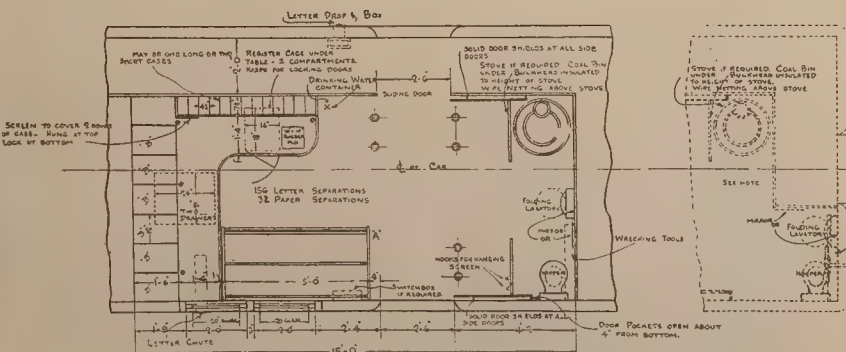 LETTER DROP & BOX
MAY BE ONE LONG OR TWO
SHORT CASES
REGISTER CAGE UNDER
TABLE - 2 COMPARTMENTS
HASPS FOR LOCKING DOORS
DRINKING WATER
CONTAINER
SLIDING DOOR
2'-6"
SOLID DOOR SHIELDS AT ALL SIDE
DOORS
STOVE IF REQUIRED. COAL BIN
UNDER, BULKHEAD INSULATED
TO HEIGHT OF STOVE.
WIRE NETTING ABOVE STOVE
STOVE IF REQUIRED. COAL BIN
UNDER BULKHEAD INSULATED
TO HEIGHT OF STOVE.
WIRE NETTING ABOVE STOVE
SCREEN TO COVER 2 ROWS
OF CASE - HUNG AT TOP
LOCK AT BOTTOM
14"
℄ OF CAR
156 LETTER SEPARATIONS
32 PAPER SEPARATIONS
TWO
DRAWERS
SEE NOTE
FOLDING
LAVATORY
MIRROR
OR
WRECKING TOOLS
MIRROR
OR
FOLDING
LAVATORY
HOOKS FOR HANGING
SCREEN
HOPPER
HOPPER
1'-6"
5'-0"
SWITCHBOX
IF REQUIRED
20" CLEAR
20" CLEAR
2'-0"
2'-0"
2'-4"
2'-6"
LETTER CHUTE
SOLID DOOR SHIELDS AT ALL
SIDE DOORS
DOOR POCKETS OPEN ABOUT
4" FROM BOTTOM.
15'-0"